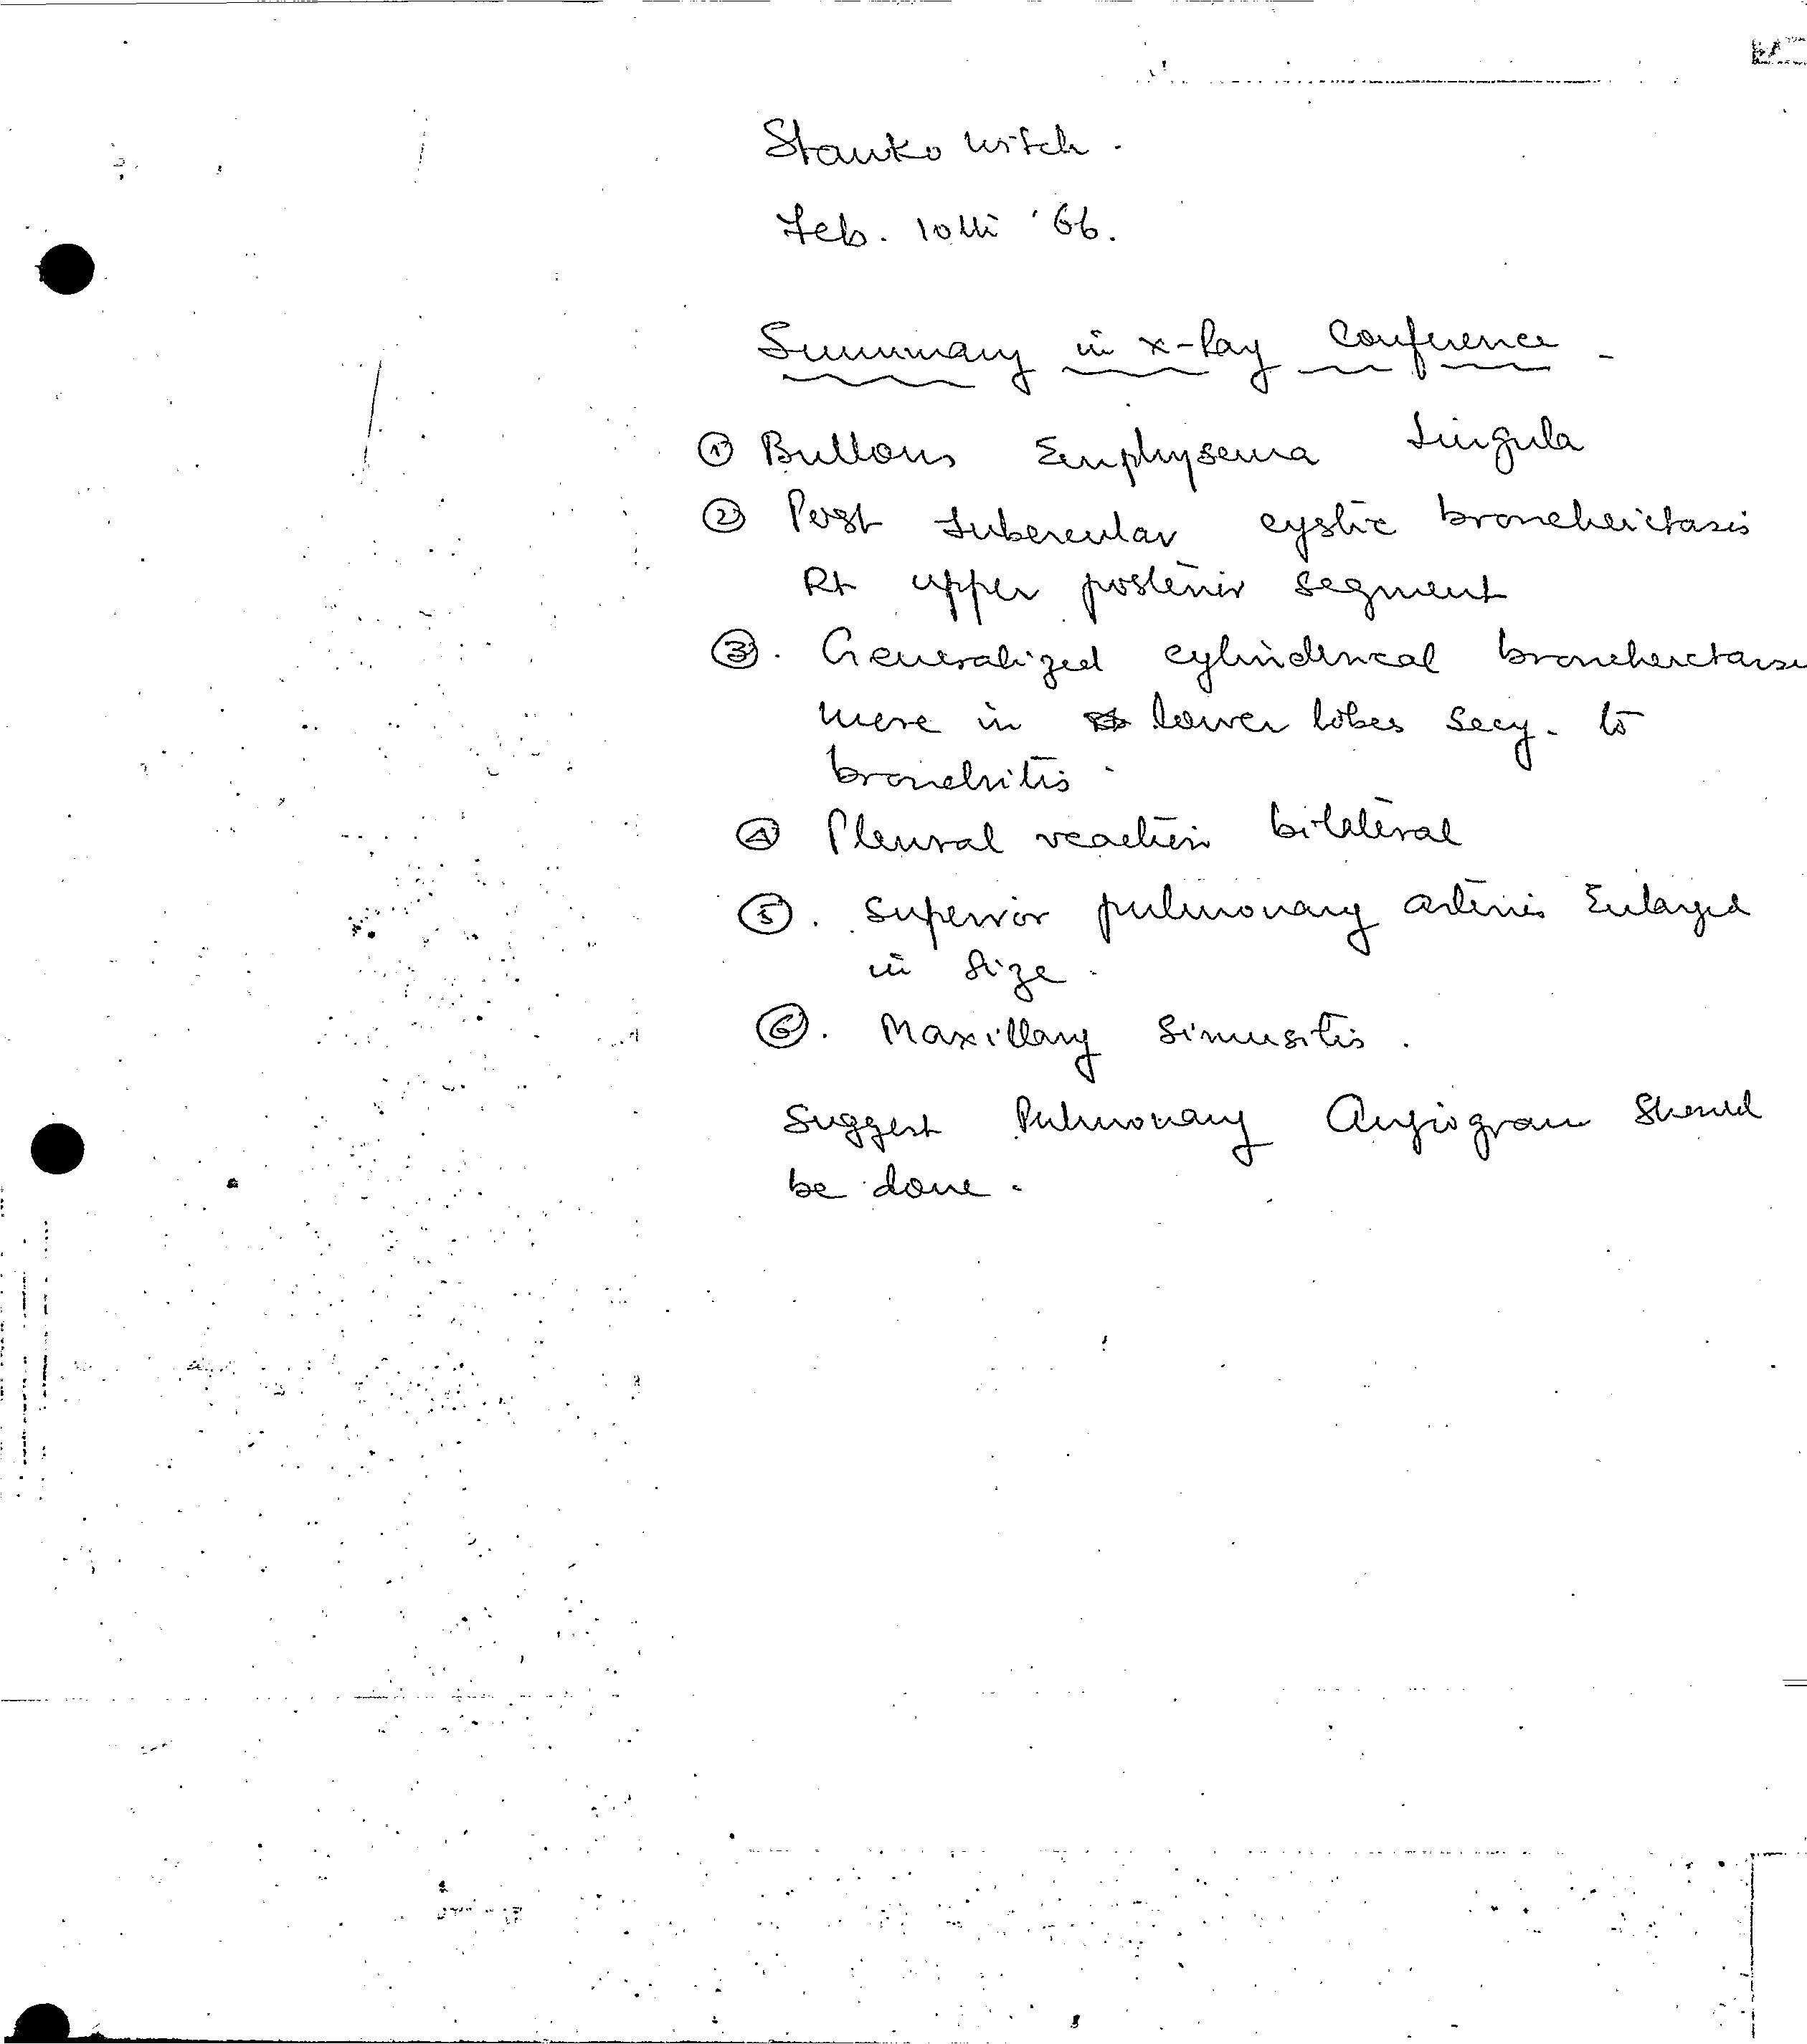 Stankowitch.
Feb. 10th '66.
Summary in x-Ray Conference -
① Bullous Emphysema Lingula
② Post tubercular cystic broncheictasis
Rt upper posterior segment
③. Generalized cylinderical broncheictasis
more in lower lobes secy. to
bronchitis.
④ Pleural reaction bilateral
⑤. Superior pulmonary arteries Enlarged
in size.
⑥. Maxillary Sinusitis.
Suggest Pulmonary Angiogram should
be done.